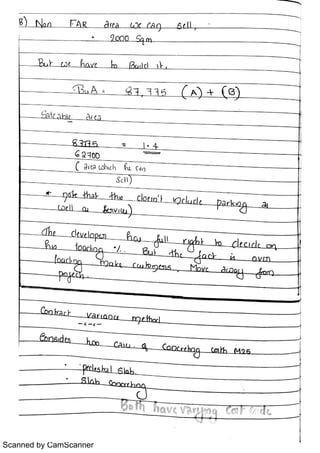 B) Non FAR area we can sell.
• 2000 Sqm
But we have to Build it.
BuA = 87,775 (A) + (B)
Saleable area
87775 = 1.4
62700
(area which he can
Sell)
* note that the doesn't include parking as
well as Services
The developer has full right to decide on
his loading %. But the fact is over
loading make customers Move away from
projects.
Contract variance method
Consider two case of Concreting with M25
• pedestal Slab
• Slab Concreting
Both have varying Cost Code
Scanned by CamScanner